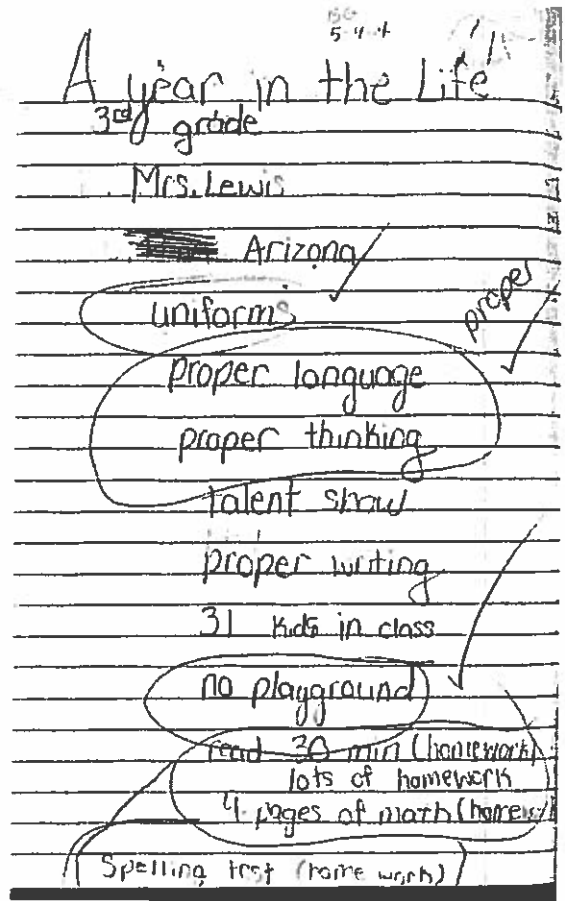 5-4-4
A year in the Life
3rd grade
Mrs. Lewis
Arizona
uniforms
proper
proper language
proper thinking
talent show
proper writing
31 kids in class
no playground
read 30 min (homework)
lots of homework
4 pages of math (homework
Spelling test (home work)